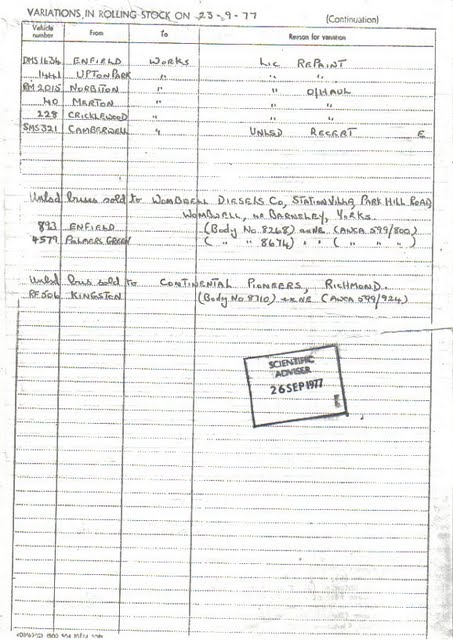 VARIATIONS IN ROLLING STOCK ON 23-9-77 (Continuation)
Vehicle number From To Reason for variation
DMS1634 ENFIELD WORKS LIC REPAINT
1441 UPTON PARK " " "
RM2015 NORBITON " " O/HAUL
40 MERTON " " "
228 CRICKLEWOOD " " "
SMS321 CAMBERWELL " UNLSD RECERT E
Unlsd buses sold to WOMBWELL DIESELS Co, STATION VILLA, PARK HILL ROAD,
WOMBWELL, NR BARNSLEY, YORKS.
893 ENFIELD (Body No. 8268) (AWXA 599/800)
4579 PALMERS GREEN ( " " 8674) " " ( " " " )
Unlsd bus sold to CONTINENTAL PIONEERS, RICHMOND.
RF506 KINGSTON (Body No 8710) (AWXA 599/924)
SCIENTIFIC
ADVISER
26 SEP 1977